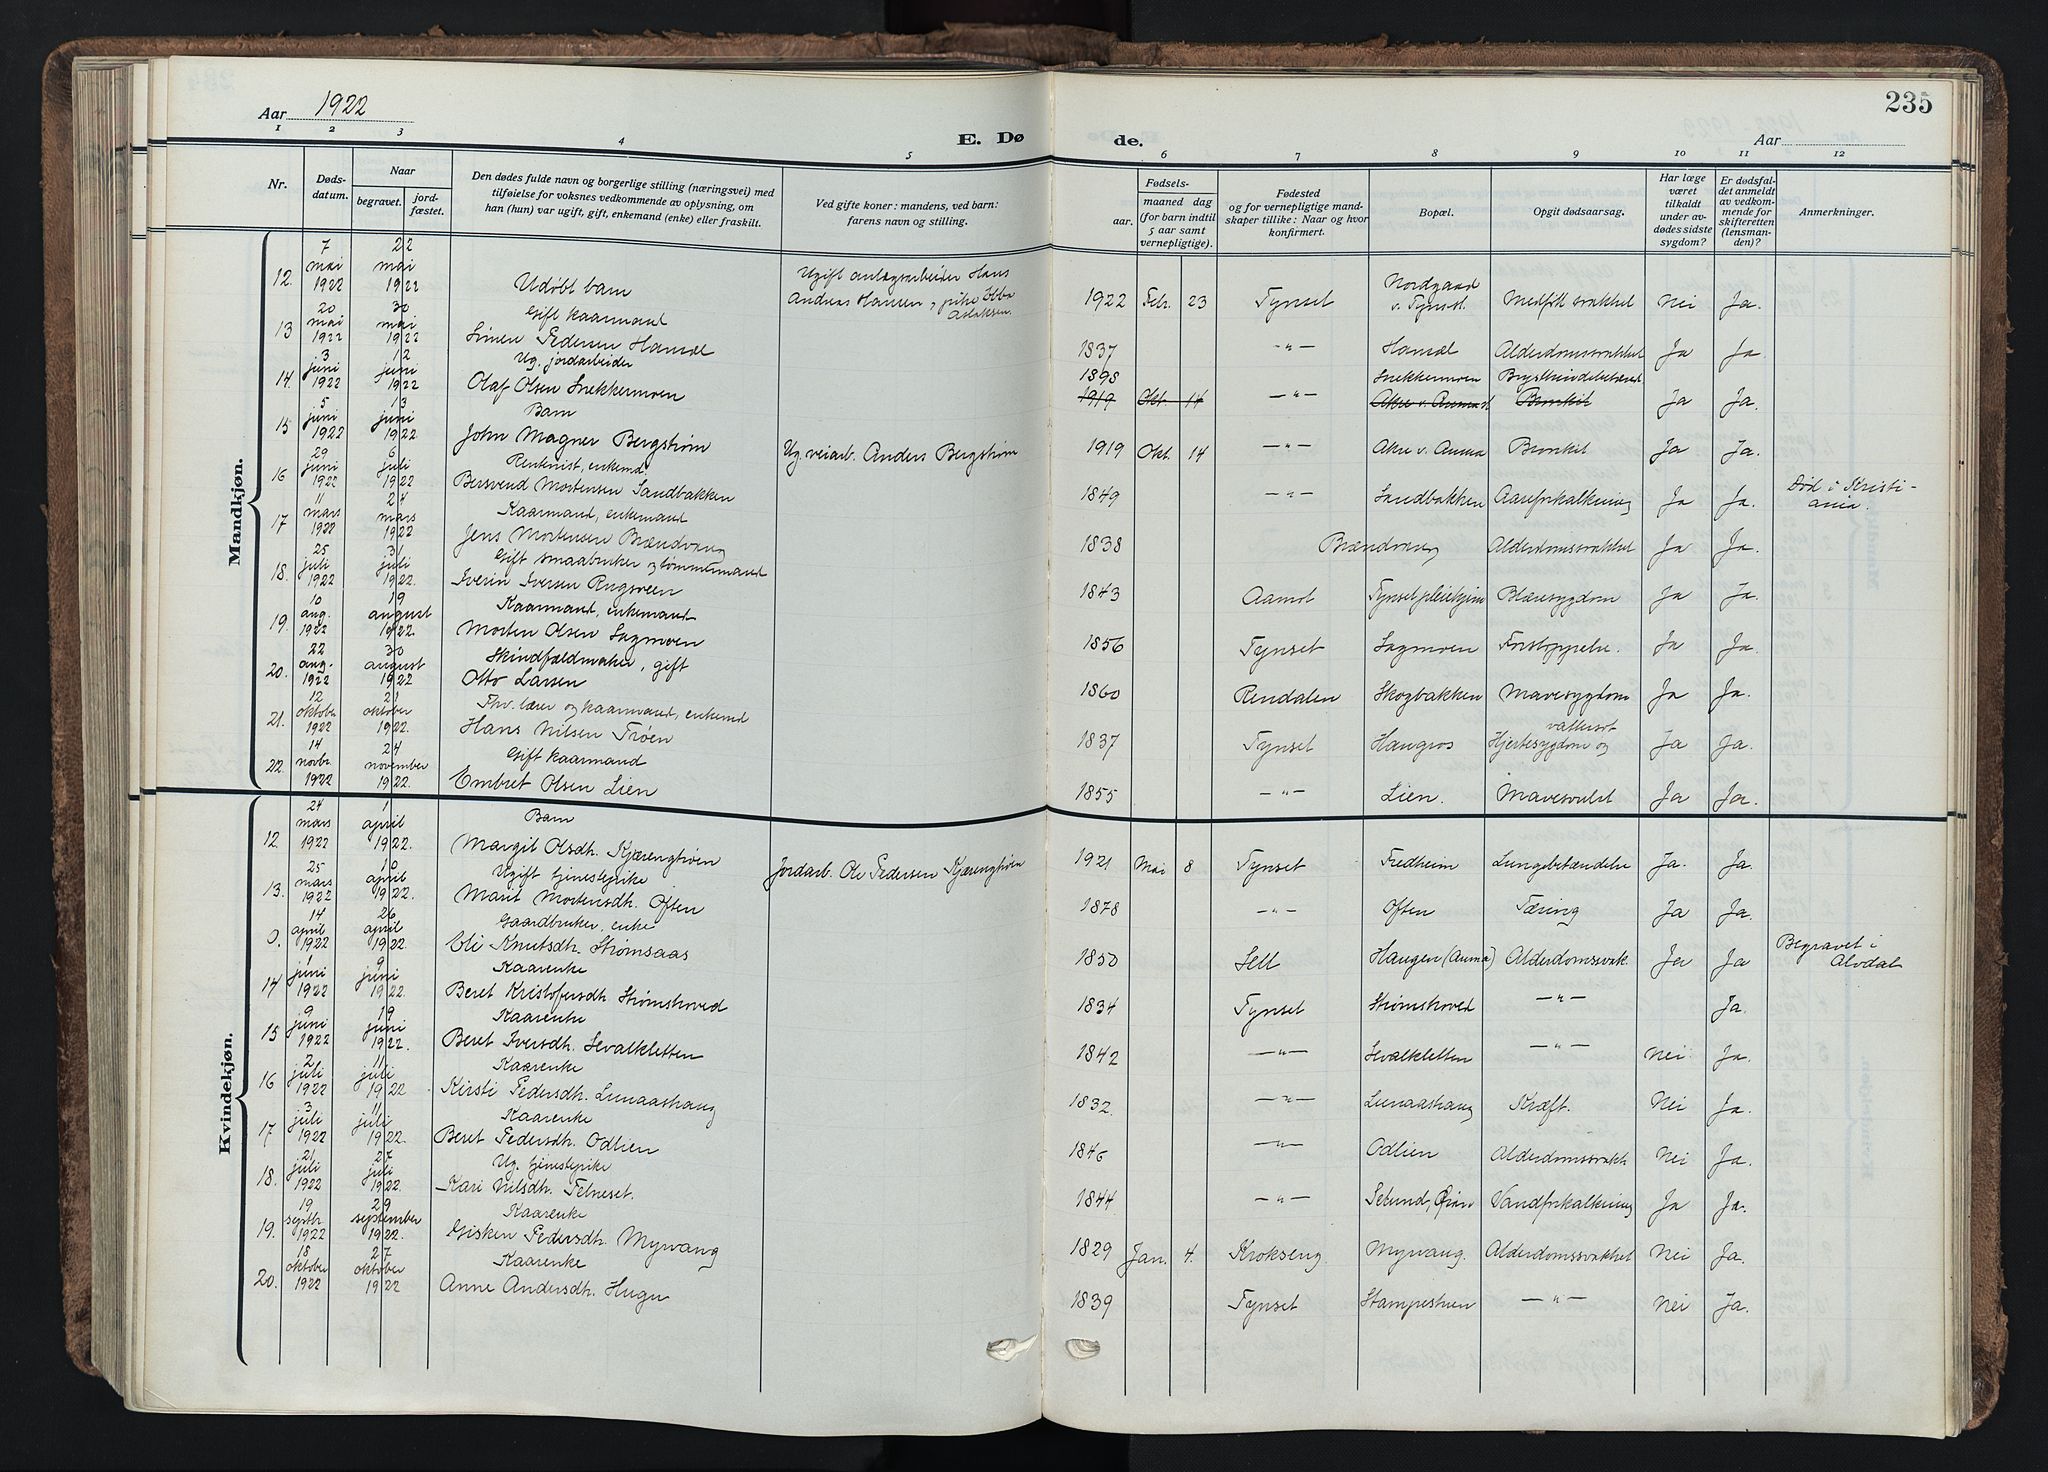 235
Aar 1922
E. Dø de.
Aar
1 2 3 4 5 6 7 8 9 10 11 12
Nr.
Døds-
datum.
Naar
begravet.
jord-
fæstet.
Den dødes fulde navn og borgerlige stilling (næringsvei) med
tilføielse for voksnes vedkommende av oplysning, om
han (hun) var ugift, gift, enkemand (enke) eller fraskilt.
Ved gifte koner: mandens, ved barn:
farens navn og stilling.
Fødsels-
aar.
maaned dag
(for barn indtil
5 aar samt
vernepligtige).
Fødested
og for vernepligtige mand-
skaper tillike: Naar og hvor
konfirmert.
Bopæl.
Opgit dødsaarsag.
Har læge
været
tilkaldt
under av-
dødes sidste
sygdom?
Er dødsfal-
det anmeldt
av vedkom-
mende for
skifteretten
(lensman-
den)?
Anmerkninger.
Mandkjøn.
12. 7 mai 1922 22 mai 1922 Udøbt barn Ugift anlægsarbeider Hans
Andreas Hansen, pike Ebba
Aslaksen. 1922 Febr. 23 Tynset Nordgaad
v. Tynset. Medfødt svakhet Nei Ja.
13 20 mai 1922 30 mai 1922 Gift kaarmand
Simen Pedersen Hamæl 1837 —"— Hamæl Alderdomssvakhet Ja Ja.
14. 3 juni 1922 12 juni 1922 Ug. jordarbeider
Olaf Olsen Snekkermoen 1898 —"— Snekkermoen Brysthindebetænd. Ja Ja.
1919 Okt. 14 Akre v. Auma st Bronkit
15 5 juni 1922 13 juni 1922 Barn
John Magner Bergstrøm Ug. veiarb. Anders Bergstrøm 1919 Okt. 14 —"— Akre v. Auma Bronkit Ja Ja.
16 29 juni 1922 6 juli 1922 Rentenist, enkemd.
Bersvend Mortensen Sandbakken 1849 —"— Sandbakken Aareforkalkning Ja Ja. Død i Kristi-
ania.
17 11 mars 1922 24 mars 1922 Kaarmand, enkemand
Jens Mortensen Brændvang 1838 Brændvang Alderdomssvakhet Ja Ja.
18. 25 juli 1922 31 juli 1922 Gift smaabruker og tømmermand
Iverin Iversen Rugsveen 1843 Aamot Tynset pleiehjem Blæresygdom Ja Ja.
19. 10 aug. 1922 19 august 1922. Kaarmand, enkemand
Morten Olsen Sagmoen 1856 Tynset Sagmoen Forstoppelse. Ja Ja.
20. 22 aug. 1922 30 august 1922 Skindfældmaker, gift
Otto Larsen 1860 Rendalen Skogbakken Mavesygdom Ja Ja.
21. 12 oktober 1922 21 oktober 1922. Fhv. lærer og kaarmand, enkemd
Hans Nilsen Trøen 1837 Tynset Haugros Hjertesygdom og
vattersot Ja Ja.
22. 14 novbr. 1922 24 november 1922. Gift kaarmand
Embret Olsen Lien 1855 —"— Lien. Mavesvulst Ja Ja.
Kvindekjøn.
12. 24 mars 1922 1 april 1922. Barn
Margit Olsdh. Kjærengtrøen Jordarb. Ole Pedersen Kjærengtrøen 1921 Mai 8 Tynset Fredheim Lungebetændelse Ja. Ja.
13. 25 mars 1922 10 april 1922. Ugift tjenestepike
Marit Mortensdh. Often 1878 —"— Often Tæring Ja Ja.
0. 14 april 1922 26 april 1922. Gaardbruker, enke
Eli Knutsdh. Strømsaas 1850 Sell Haugen (Auma) Alderdomssvak. Ja Ja Begravet i
Alvdal
14 1 juni 1922 9 juni 1922. Kaarenke
Beret Kristofersdh. Strømshoved 1834 Tynset Strømshoved —"— Ja.
15 9 juni 1922 19 juni 1922. Kaarenke
Beret Iversdh. Sevalkletten 1842 —"— Sevalkletten —"— Nei Ja.
16 2 juli 1922 11 juli 1922 Kaarenke
Kirsti Pedersdh. Lunaashaug 1832 —"— Lunaashaug Kræft. Nei Ja.
17 3 juli 1922 11 juli 1922. Kaarenke
Beret Pedersdh. Odlien 1846 —"— Odlien Alderdomssvakh Nei Ja.
18. 21 juli 1922 27 juli 1922. Ug. tjenestepike
Kari Nilsdh. Telneset. 1844 —"— Selund, Øian Vandforkalkning Ja Ja.
19. 19 septbr. 1922 29 september 1922. Kaarenke
Gisken Pedersdh. Myrvang 1829 Jan. 4. Krokseng Myrvang. Alderdomssvakhet Nei Ja.
20. 18 oktober 1922 27 oktober 1922 Kaarenke
Anne Andersdh. Hugu 1839 Tynset Stampestuen —"— Nei Ja.